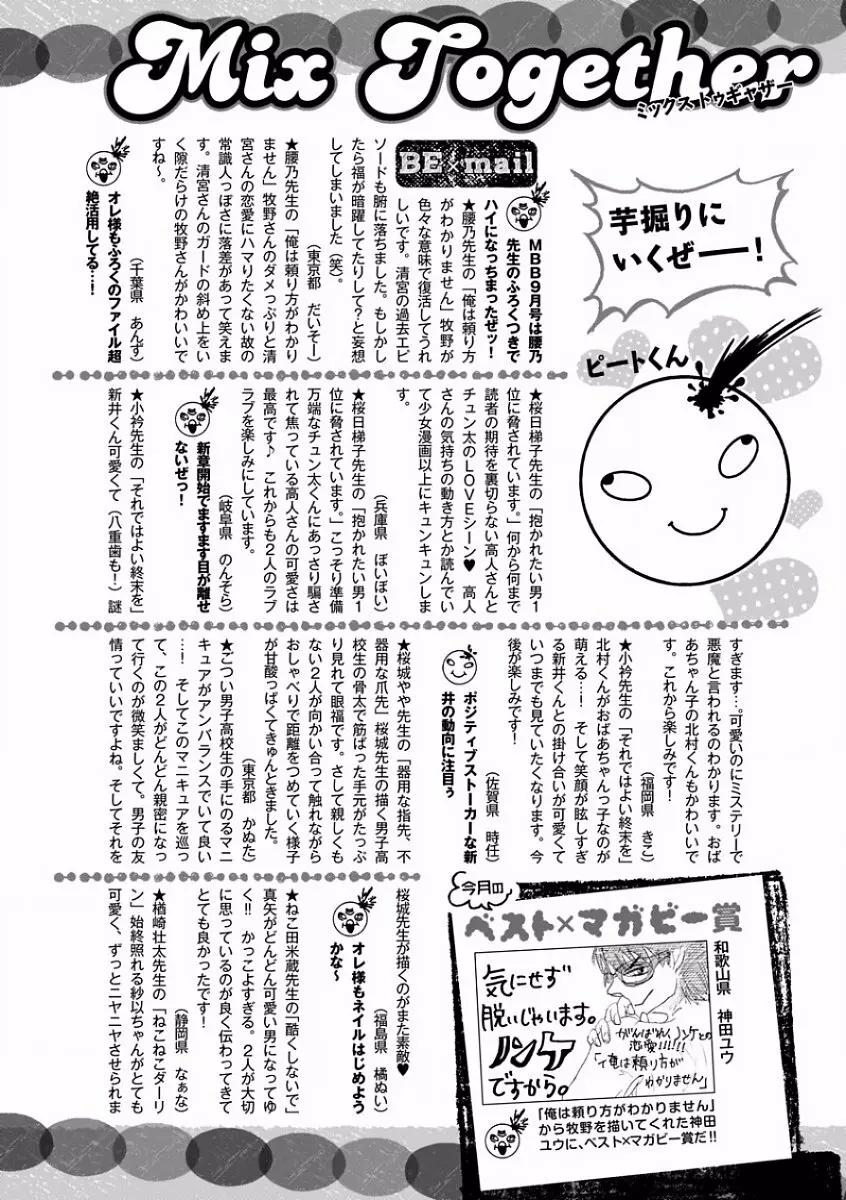 Mix Together
ミックス トゥギャザー
芋掘りに
いくぜ――！
ピートくん
BE×mail
ＭＢＢ９月号は腰乃
先生のふろくつきで
ハイになっちまったぜッ！
★腰乃先生の「俺は頼り方
がわかりません」牧野が
色々な意味で復活してうれ
しいです。清宮の過去エピ
ソードも腑に落ちました。もしかし
たら福が暗躍してたりして？と妄想
してしまいました（笑）。
（東京都　だいそー）
★腰乃先生の「俺は頼り方がわかり
ません」牧野さんのダメっぷりと清
宮さんの恋愛にハマりたくない故の
常識人っぽさに落差があって笑えま
す。清宮さんのガードの斜め上をい
く隙だらけの牧野さんがかわいいで
すね〜。
（千葉県　あんず）
オレ様もふろくのファイル超
絶活用してる…！
★桜日梯子先生の「抱かれたい男１
位に脅されています。」何から何まで
読者の期待を裏切らない高人さんと
チュン太のＬＯＶＥシーン♥　高人
さんの気持ちの動き方とか読んでい
て少女漫画以上にキュンキュンしま
す。
（兵庫県　ぽいぽい）
★桜日梯子先生の「抱かれたい男１
位に脅されています。」こっそり準備
万端なチュン太くんにあっさり騙さ
れて焦っている高人さんの可愛さは
最高です♪　これからも２人のラブ
ラブを楽しみにしています。
（岐阜県　のんそら）
新章開始でますます目が離せ
ないぜっ！
★小衿先生の「それではよい終末を」
新井くん可愛くて（八重歯も！）謎
すぎます…。可愛いのにミステリーで
悪魔と言われるのわかります。おば
あちゃん子の北村くんもかわいいで
す。これから楽しみです！
（福岡県　きこ）
★小衿先生の「それではよい終末を」
北村くんがおばあちゃんっ子なのが
萌える…！　そして笑顔が眩しすぎ
る新井くんとの掛け合いが可愛くて
いつまでも見ていたくなります。今
後が楽しみです！
（佐賀県　時任）
ポジティブストーカーな新
井の動向に注目ぅ
★桜城やや先生の「器用な指先、不
器用な爪先」桜城先生の描く男子高
校生の骨太で筋ばった手元がたっぷ
り見れて眼福です。さして親しくも
ない２人が向かい合って触れながら
おしゃべりで距離をつめていく様子
が甘酸っぱくてきゅんときました。
（東京都　かぬた）
★ごつい男子高校生の手にのるマニ
キュアがアンバランスでいて良い
…！　そしてこのマニキュアを巡っ
て、この２人がどんどん親密になっ
て行くのが微笑ましくて。男子の友
情っていいですよね。そしてそれを
桜城先生が描くのがまた素敵♥
（福島県　橘ぬい）
オレ様もネイルはじめよう
かな〜
★ねこ田米蔵先生の「酷くしないで」
真矢がどんどん可愛い男になってゆ
く!!　かっこよすぎる。２人が大切
に思っているのが良く伝わってきて
とても良かったです！
（静岡県　なぁな）
★楢崎壮太先生の「ねこねこダーリ
ン」始終照れる紗以ちゃんがとても
可愛く、ずっとニヤニヤさせられま
今月の
ベスト×マガビー賞
和歌山県　神田ユウ
気にせず
脱いじゃいます。
ノンケ
ですから。
がんばれ ノンケとの
恋愛!!!!!
「俺は頼り方が
わかりません」
「俺は頼り方がわかりません」
から牧野を描いてくれた神田
ユウに、ベスト×マガビー賞だ!!